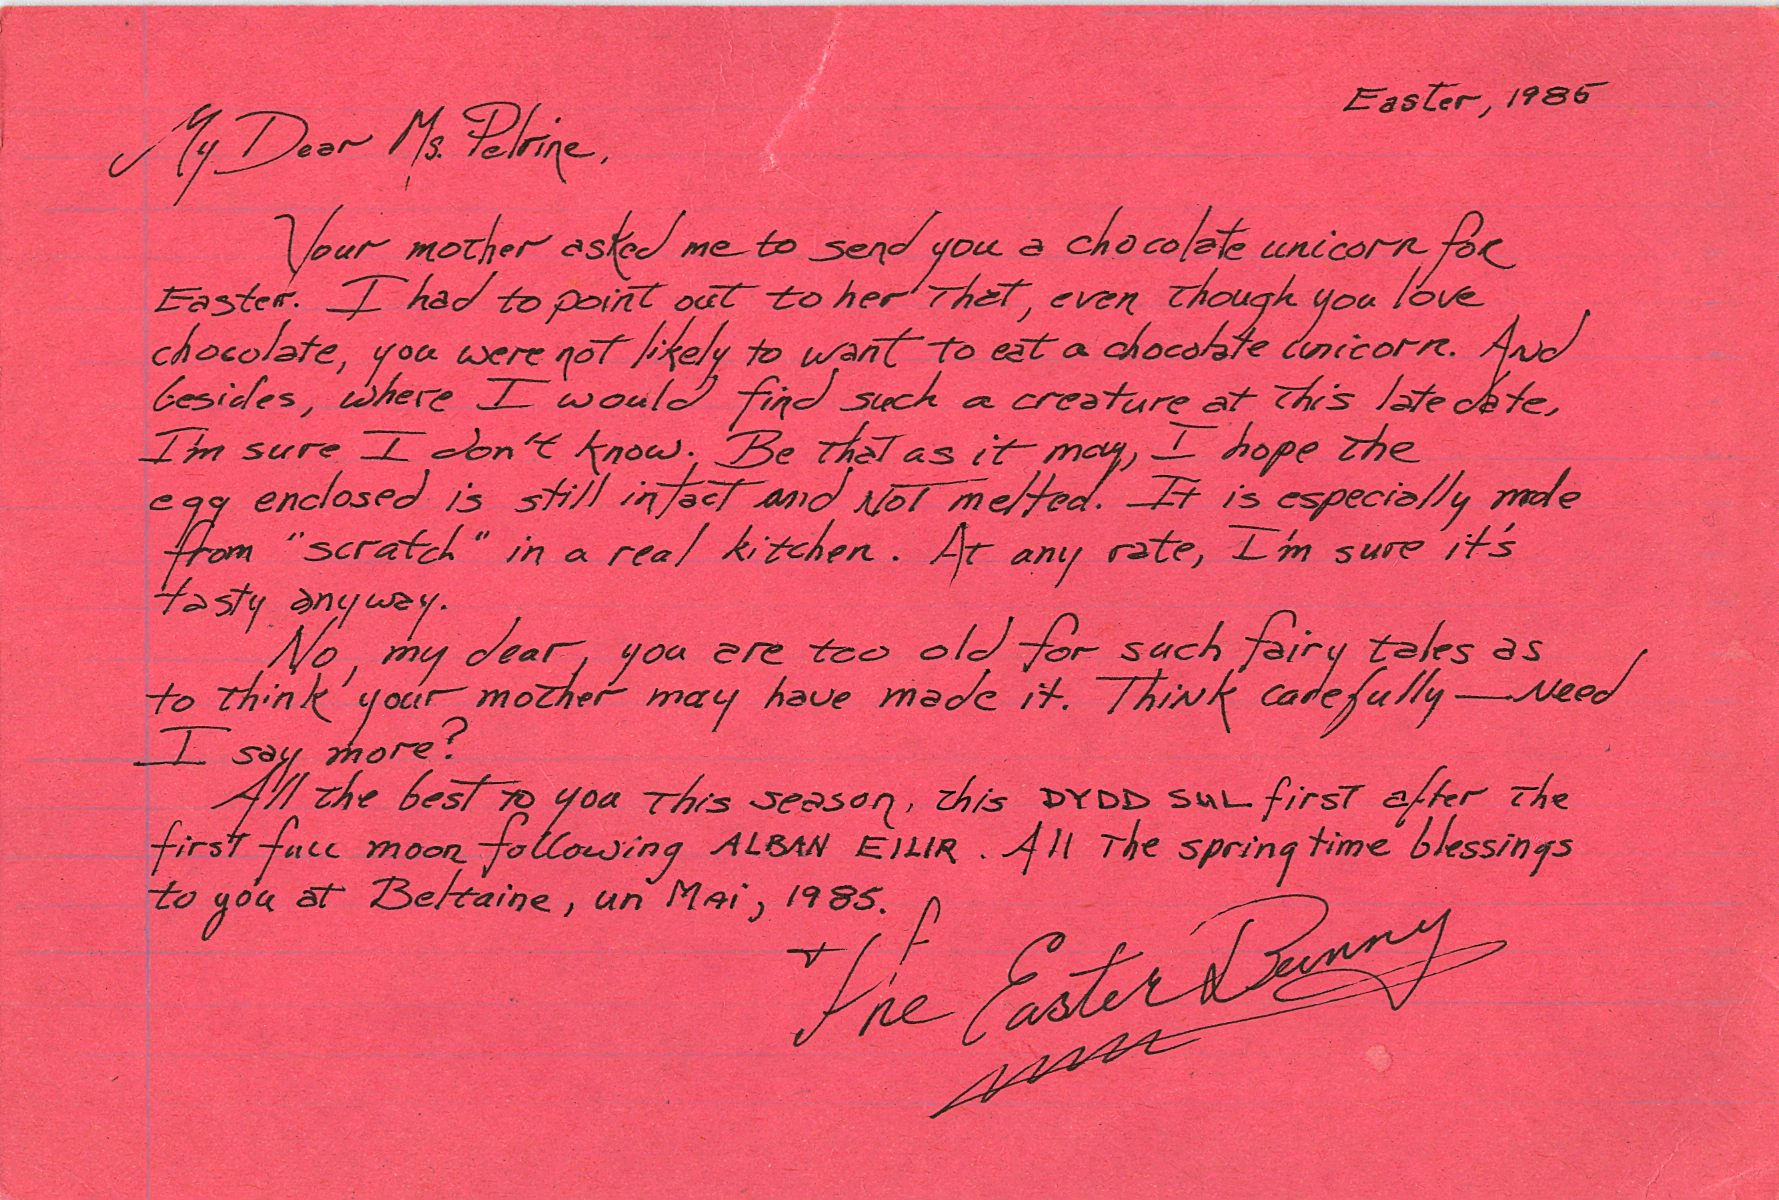 Easter, 1985
My Dear Ms. Pelrine,
Your mother asked me to send you a chocolate unicorn for
Easter. I had to point out to her that, even though you love
chocolate, you were not likely to want to eat a chocolate unicorn. And
besides, where I would find such a creature at this late date,
I'm sure I don't know. Be that as it may, I hope the
egg enclosed is still intact and NOT melted. It is especially made
from "scratch" in a real kitchen. At any rate, I'm sure it's
tasty anyway.
No, my dear, you are too old for such fairy tales as
to think your mother may have made it. Think carefully — Need
I say more?
All the best to you this season, this DYDD SUL first after the
first full moon following ALBAN EILIR. All the springtime blessings
to you at Beltaine, un Mai, 1985.
The Easter Bunny